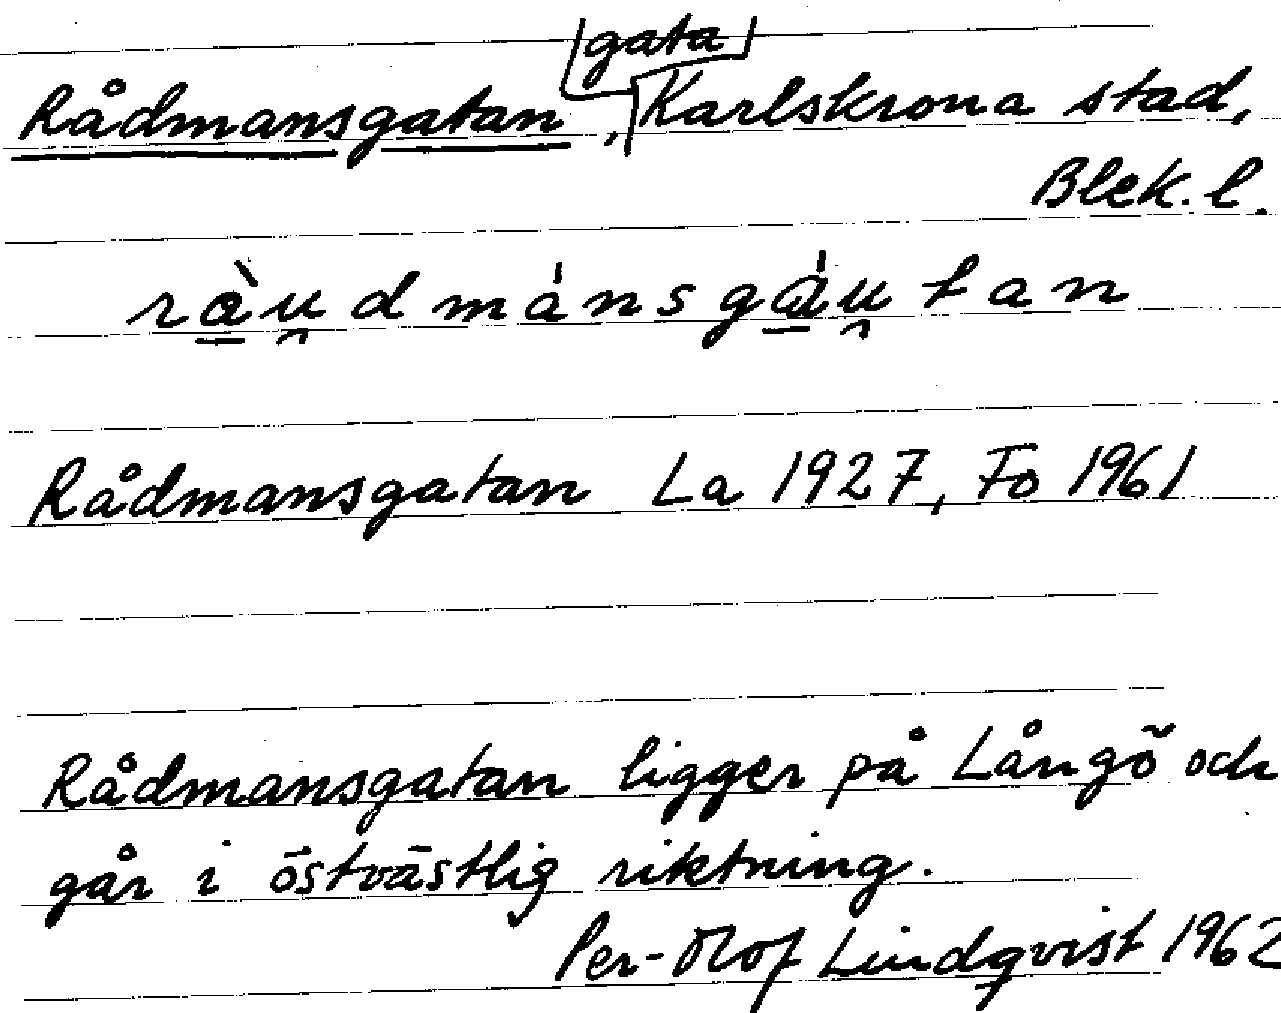 Rådmansgatan, [gata] Karlskrona stad,
Blek. l.
ràu̯dmánsgáu̯tan
Rådmansgatan La 1927, Fo 1961
Rådmansgatan ligger på Långö och
går i östvästlig riktning.
Per-Olof Lindqvist 1962